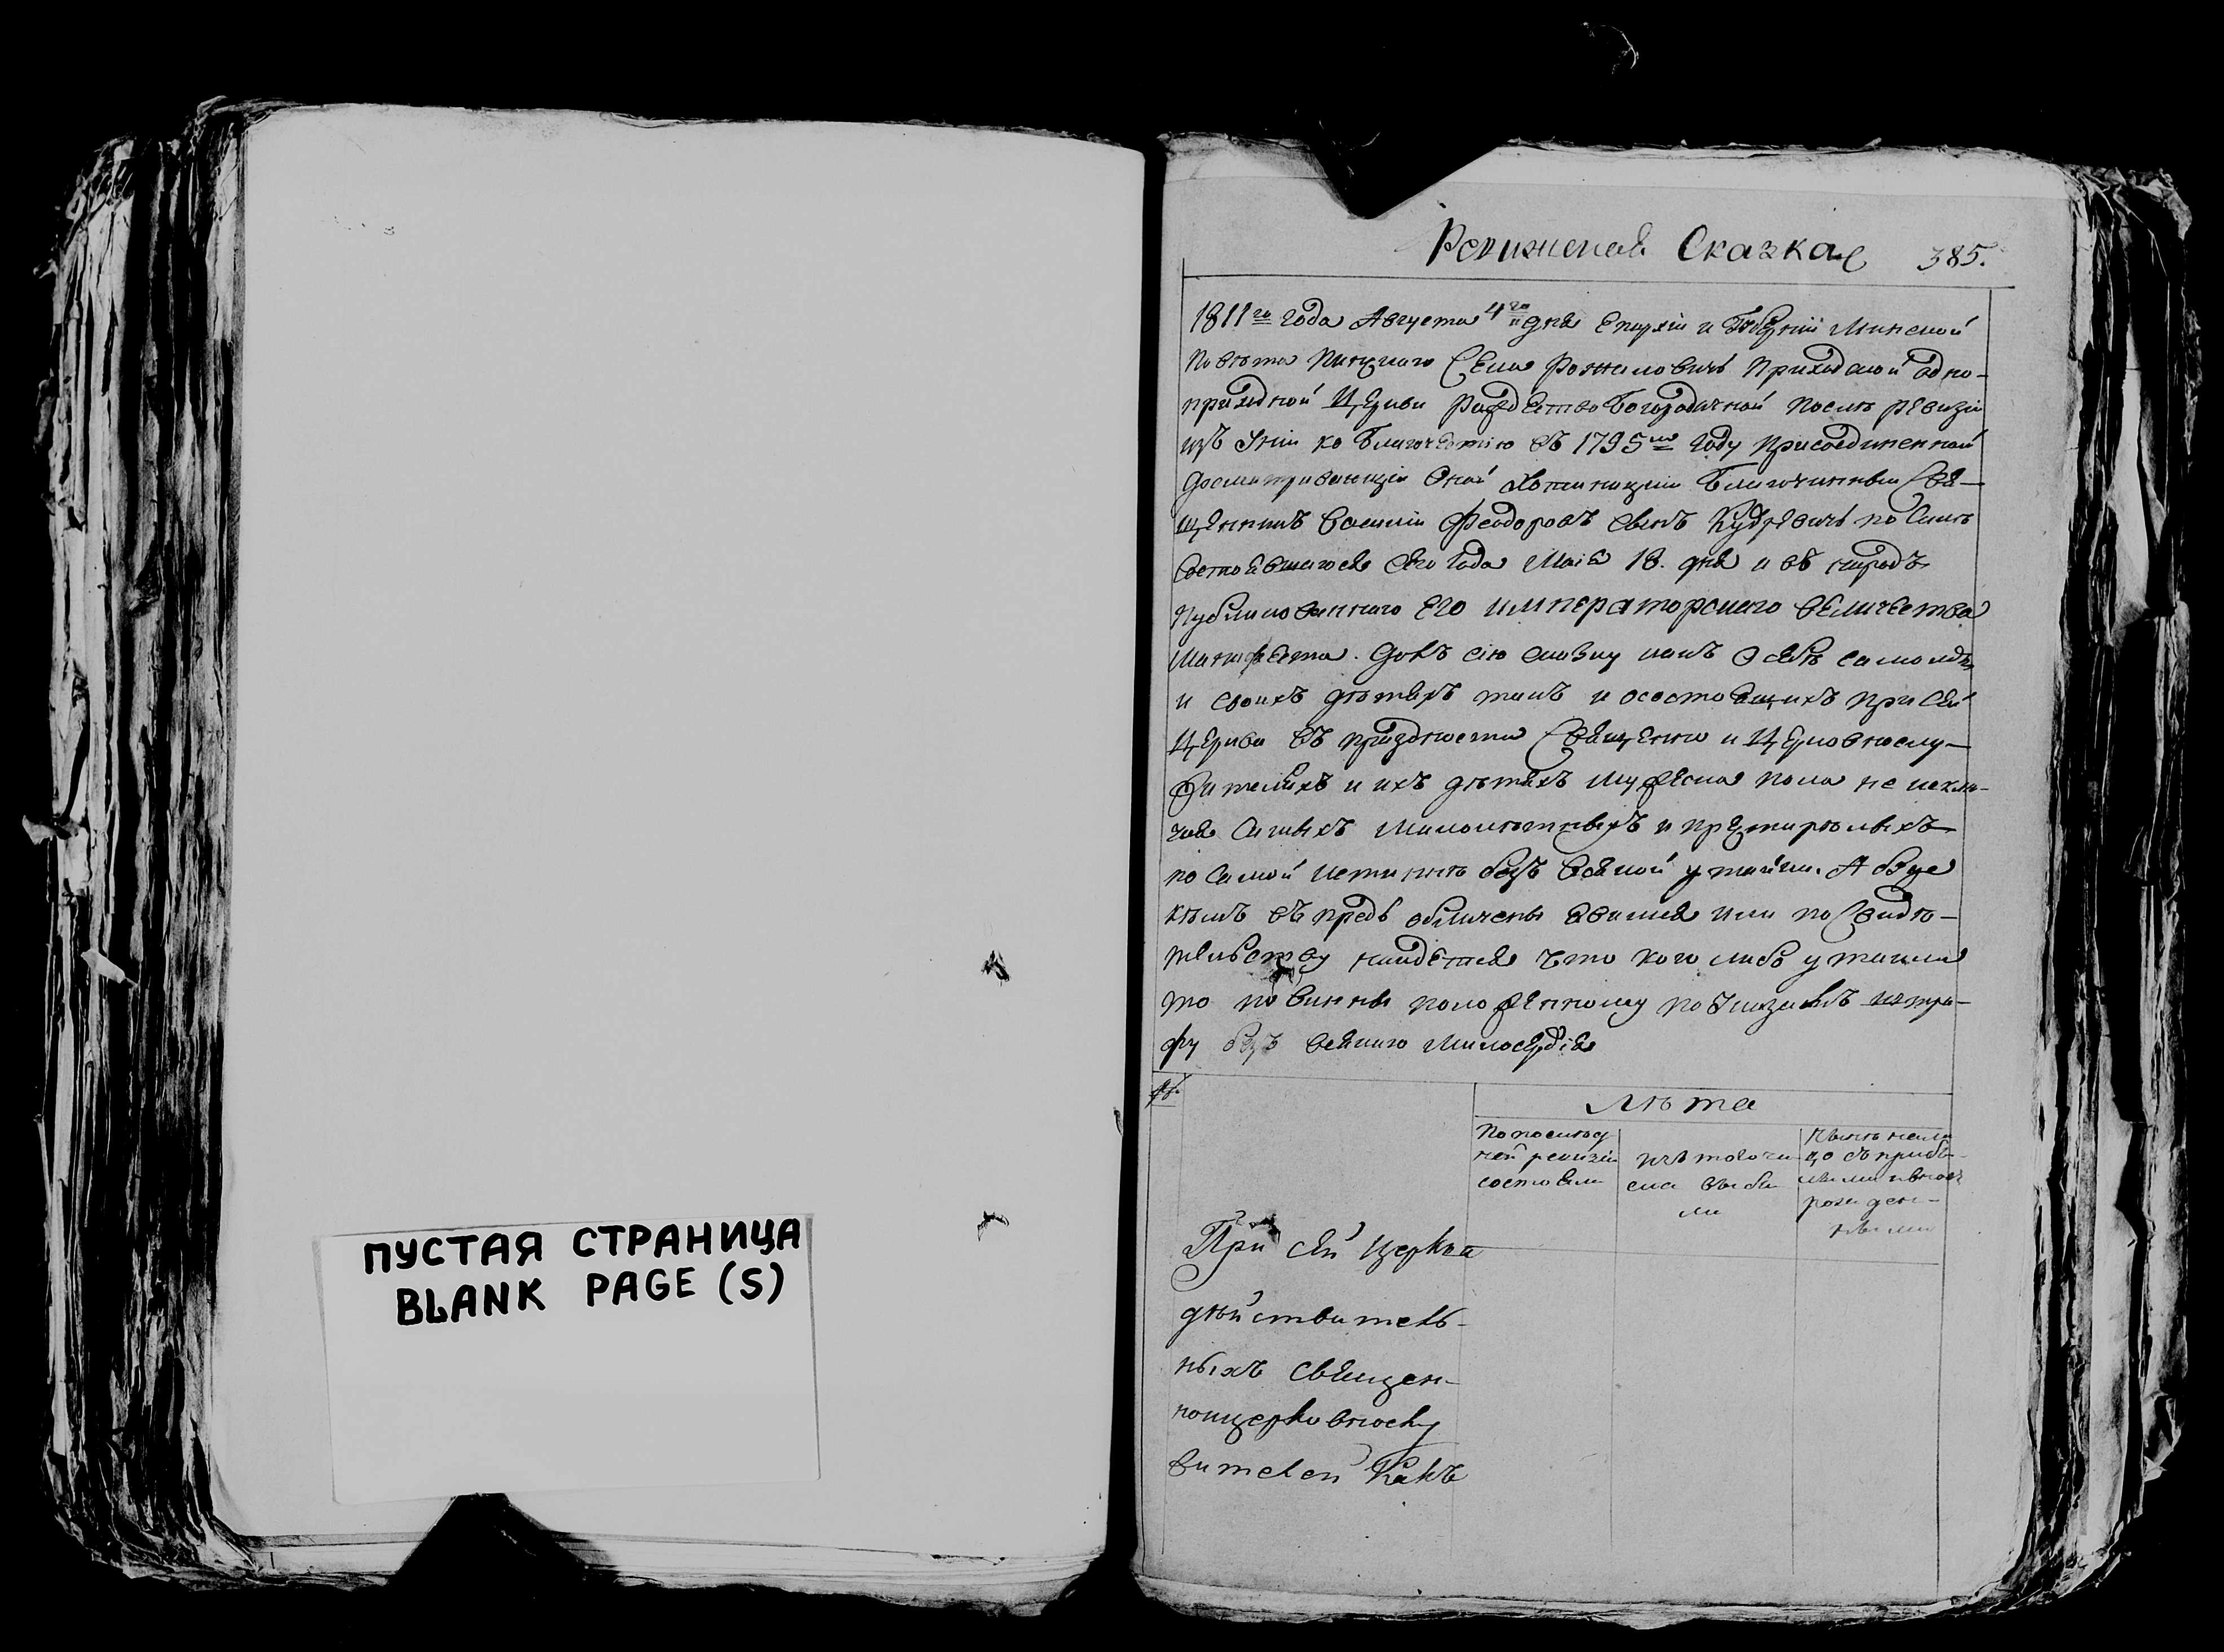 ПУСТАЯ СТРАНИЦА
BLANK PAGE (S)
Ревизская Сказка
385.
1811го года Августа 4го дня Епархіи и Губерніи Минской
Повѣта Пинскаго Села Рожаловичь Приходской одно-
приходной Церкви Рождество Богородичной послѣ ревизіи
изъ Уніи ко благочестію въ 1795мъ году присоединенной
досматривающій оной Благочинный Свя-
щенникъ Василій Феодоровъ сынъ Кудревичь по силѣ
состоявшагося сего года Маія 18. дня и въ народъ
публикованнаго Его Императорскаго Величества
Манифеста. Далъ сію сказку какъ о себѣ самомъ
и своихъ дѣтяхъ такъ и о состоящихъ при сей
Церкви въ праздности Священно и Церковнослу-
жителяхъ и ихъ дѣтяхъ мужеска пола не исклю-
чая самыхъ малолѣтныхъ и престарѣлыхъ
по самой истиннѣ безъ всякой утайки. А буде
кѣмъ въ предь обличены явимся или по свидѣ-
тельству найдется что кого либо утаили
то повинны положенному по Указамъ штра-
фу безъ всякаго милосердія
№
Лѣта
По послѣд
ней ревизіи
состояли
изъ того чи
сла выбы
ли
Нынѣ нали
цо съ прибы-
лыми и вновь
рожден-
ными
При сей Церкви
дѣйствитель-
ныхъ священ-
ноицерковнослу
жителей какъ